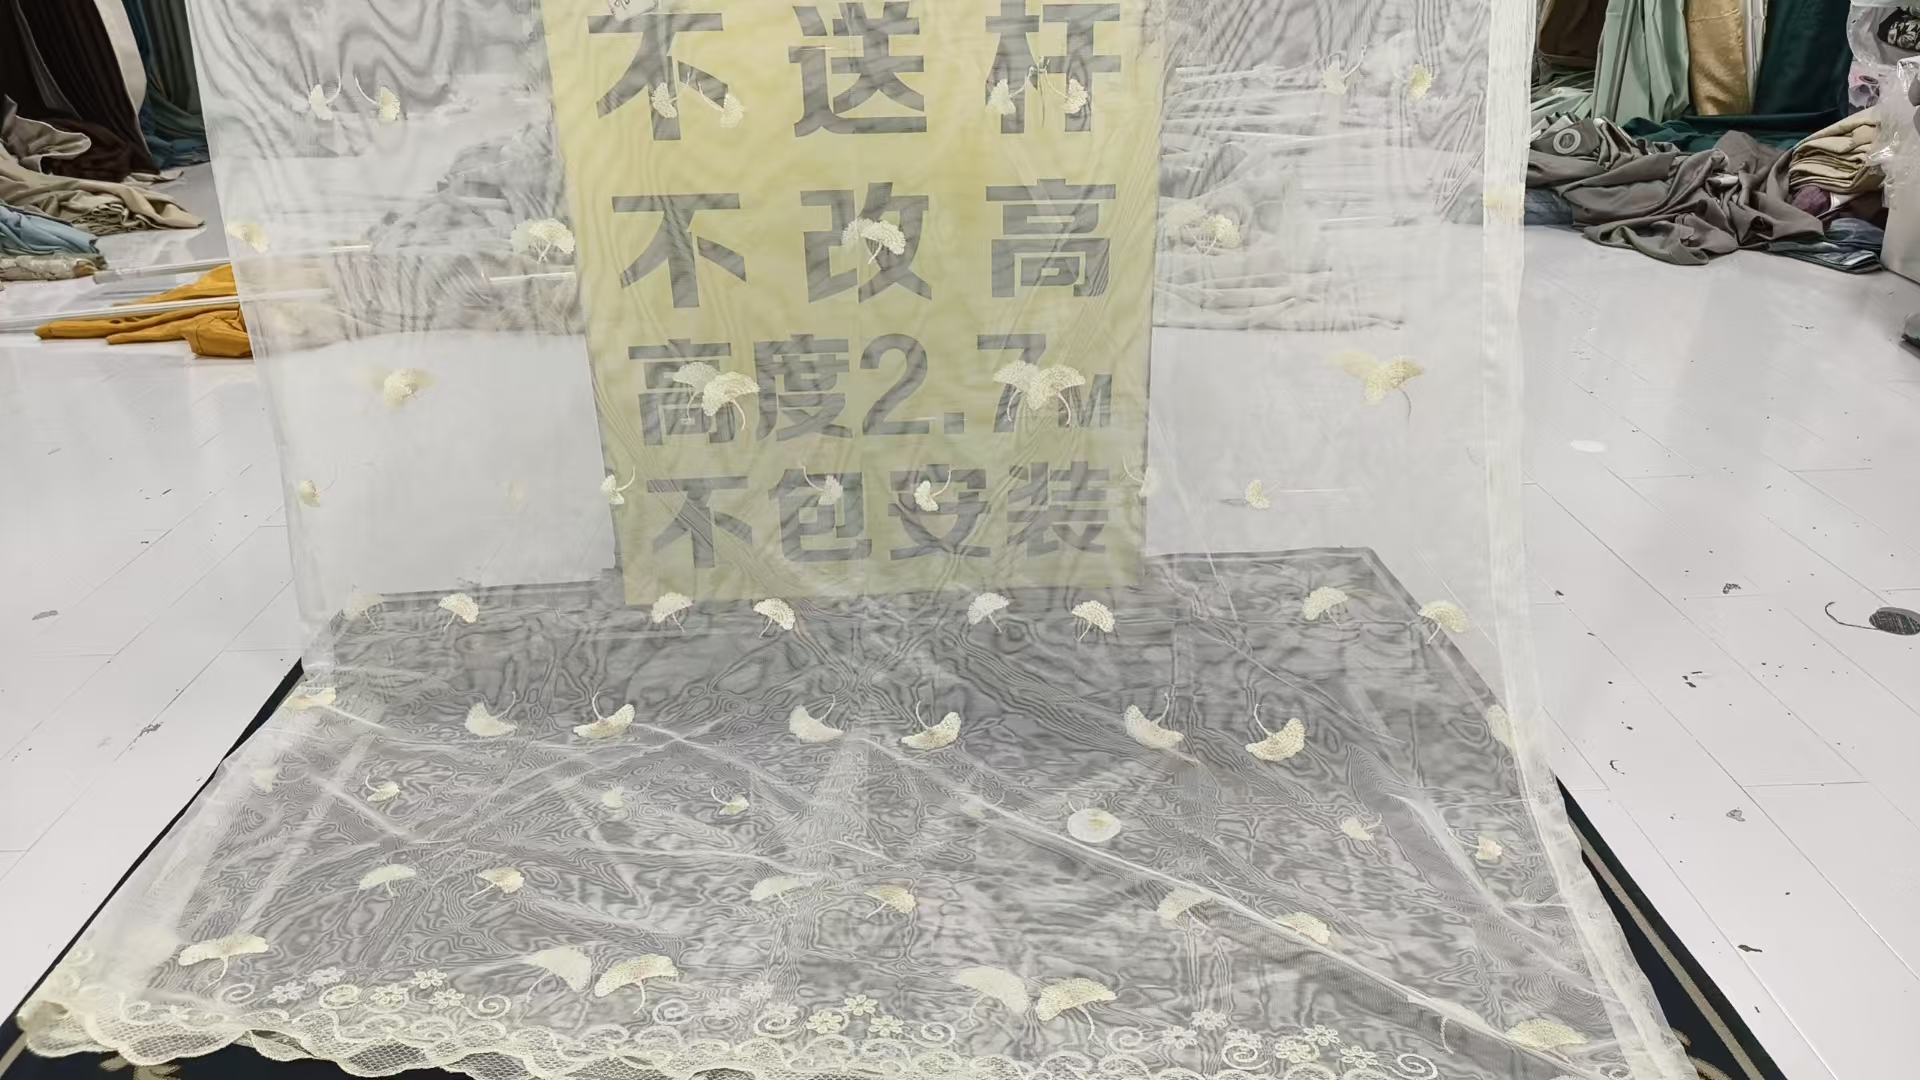 不送杆
不改高
高度2.7M
不包安装